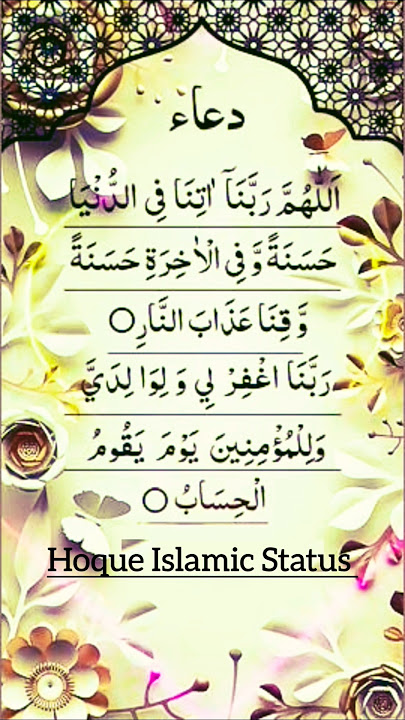 دعاء
اَللّٰهُمَّ رَبَّنَآ اٰتِنَا فِی الدُّنْیَا
حَسَنَةً وَّ فِی الْاٰخِرَةِ حَسَنَةً
وَّ قِنَا عَذَابَ النَّارِ○
رَبَّنَا اغْفِرْ لِي وَ لِوَا لِدَيَّ
وَلِلْمُؤْمِنِينَ يَوْمَ يَقُومُ
الْحِسَابُ ○
Hoque Islamic Status